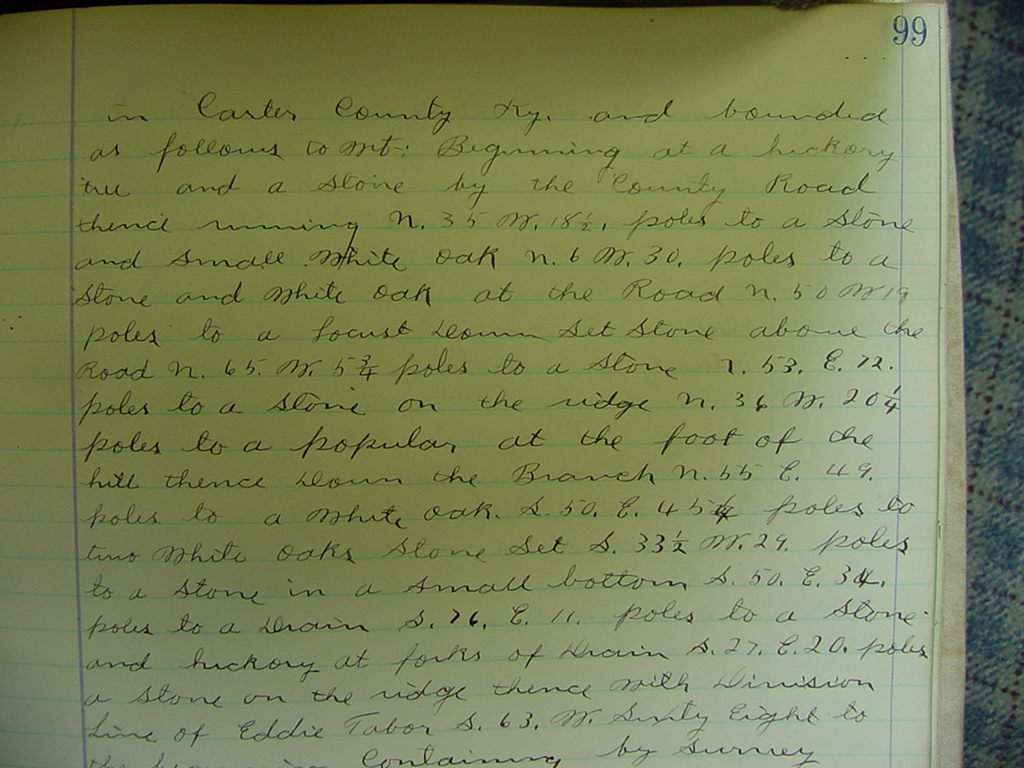 99
in Carter County Ky. and bounded
as follows to Mt-: Beginning at a hickory
tree and a stone by the County Road
thence running N. 35 W. 18½. poles to a Stone
and small White Oak N. 6 W. 30. poles to a
Stone and White Oak at the Road N. 50 W 19
poles to a Locust Down Set Stone above the
Road N. 65. W. 5¾ poles to a Stone N. 53. E. 72.
poles to a Stone on the ridge N. 36 W. 20¼
poles to a popular, at the foot of the
hill thence Down the Branch N. 55 E. 49.
poles to a White Oak. S. 50. E. 45 poles to
two White Oaks Stone Set S. 33½ W. 29. poles
to a Stone in a small bottom S. 50. E. 34.
poles to a Drain S. 76. E. 11. poles to a Stone
and hickory at forks of Drain S. 27. E. 20. poles
a Stone on the ridge thence With Division
Line of Eddie Tabor S. 63. W. Sixty Eight to
the beginning Containing by Survey